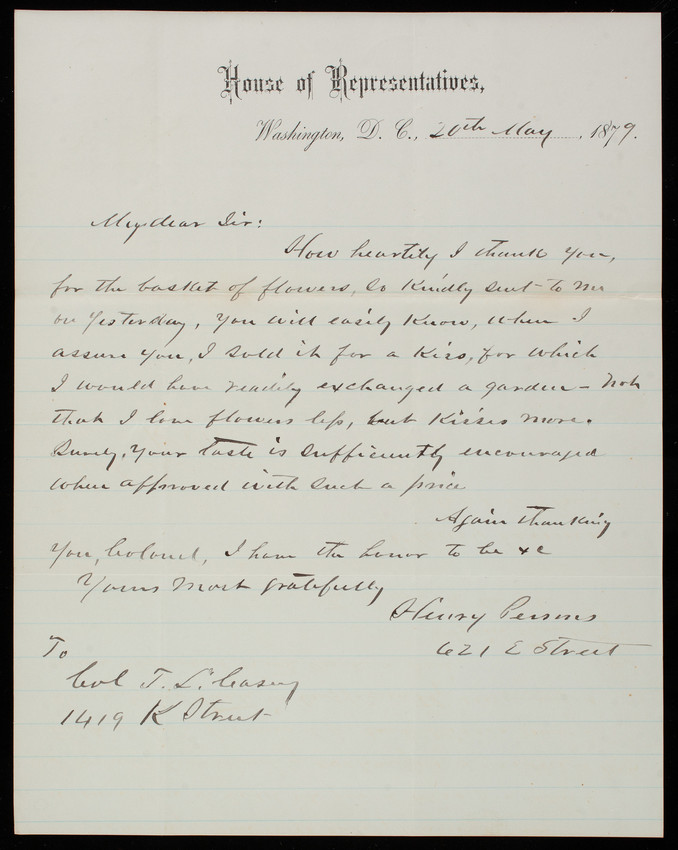 House of Representatives,
Washington, D. C., 20th May, 1879.
My dear Sir:
How heartily I thank you,
for the basket of flowers, so kindly sent to me
on yesterday, you will easily know, when I
assure you, I sold it for a kiss, for which
I would have readily exchanged a garden - not
that I love flowers less, but kisses more.
Surely, your taste is sufficiently encouraged
when approved with such a price
Again thanking
you, Colonel, I have the honor to be &c
Yours most gratefully
Henry Persons
621 E Street
To
Col T. L. Casey
1419 K Street